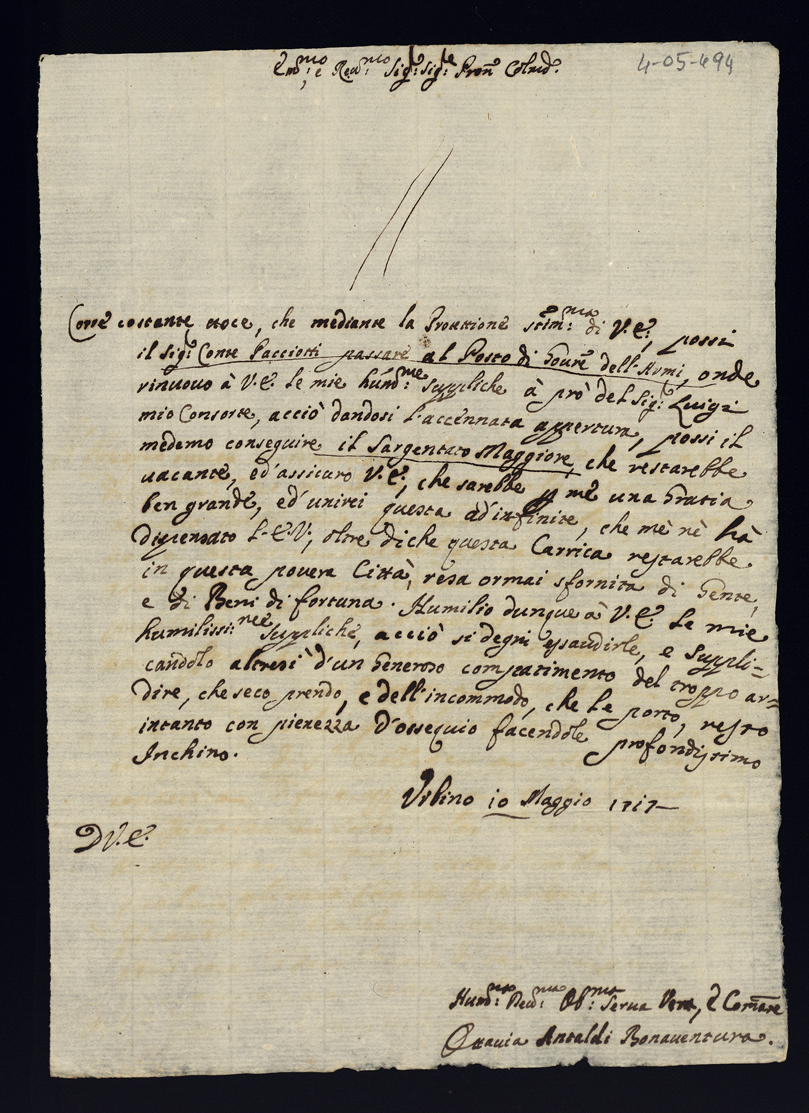 Em.mo e Rev.mo Sig.r Sig.r Pron Colmo.
4-05-494
Corre costante voce, che mediante la Protettione stim.ma di V.E., possi
il Sig.r Conte Pacciotti passare al Posto di Gover.re dell'Armi, onde
rinuovo à V.E. le mie hum.me suppliche à prò del Sig.r Luigi
mio Consorte, acciò dandosi l'accennata appertura, possi il
medemo conseguire il Sargentato Maggiore, che restarebbe
vacante, ed'assicuro V.E., che sarebbe p me una Gratia
ben grande, ed'unirei questa ad'infinite, che mè nè hà
dispensato l'E.V., oltre di che questa Carrica restarebbe
in questa povera Città, resa ormai sfornita di Gente,
e di Beni di fortuna. Humilio dunque à V.E. le mie
humilissi.me suppliche, acciò si degni essaudirle, e suppli-
candolo altresì d'un Generoso compatimento del troppo ar-
dire, che seco prendo, e dell'incommodo, che le porto, resto
intanto con pienezza d'ossequio facendole profondissimo
Inchino.
Urbino 10 Maggio 1717
D V.E.
Hum.ma Dev.ma Ob.ma Serva Vera, è Comare
Ottavia Antaldi Bonaventura.